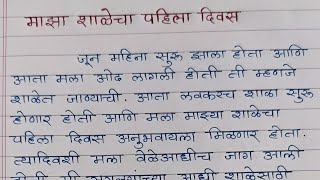 माझा शाळेचा पहिला दिवस
जून महिना सुरू झाला होता आणि
आता मला ओढ लागली होती ती म्हणजे
शाळेत जाण्याची. आता लवकरच शाळा सुरू
होणार होती आणि मला माझ्या शाळेचा
पहिला दिवस अनुभवायला मिळणार होता.
त्यादिवशी मला वेळेआधीच जाग आली
होती मी आधी शाळेसाठी